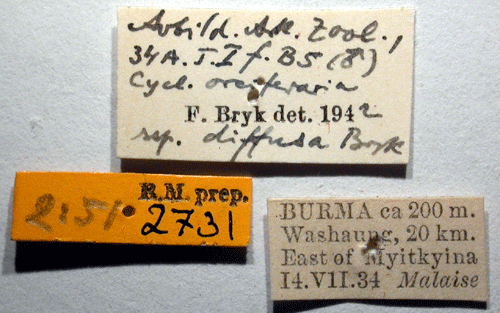 Abbild. Ark. Zool.,
34A. T. I f. B5 (♂)
Cycl. orciferaria
F. Bryk det. 1942
ssp. diffusa Bryk
R.M. prep.
2:51 2731
BURMA ca 200 m.
Washaung, 20 km.
East of Myitkyina
14.VII.34 Malaise